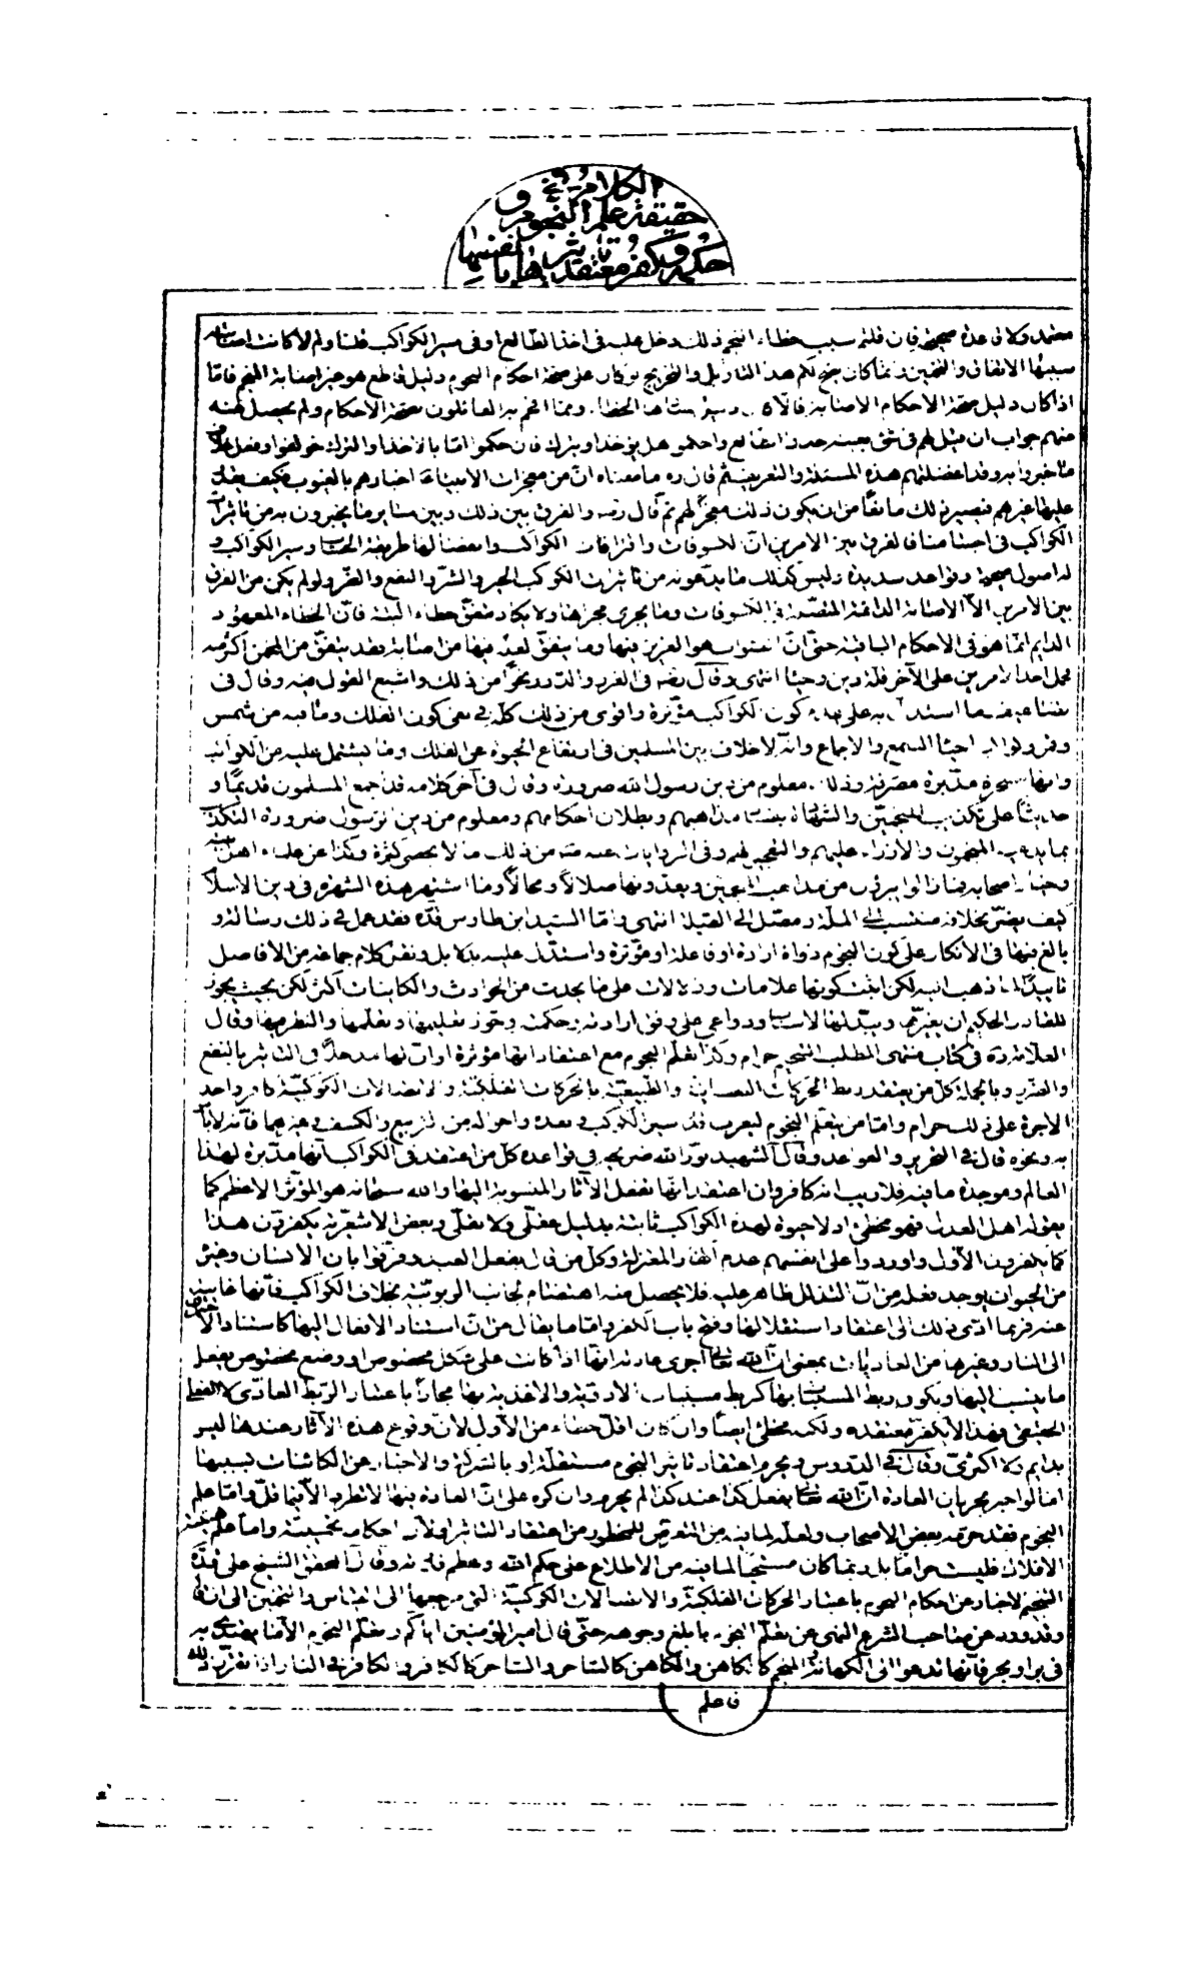 الكلام في
حقيقة علم النجوم و
حكمه وكفر معتقد تأثيرها بانفسها
معتمد ولا قاعدة صحيحة فان قلتم سبب خطاء المنجم ذلك دخل عليه في اخذ الطالع او في سير الكواكب قلنا ولم لا كانت اصابته
سببها الاتفاق والتخمين وانما كان يصح لكم هذا التأويل والتخريج لو كان على صحة احكام النجوم دليل قاطع هو غير اصابة المنجم فاما
اذا كان دليل صحة الاحكام الاصابة فالا كان دليل فسادها الخطاء ومما افحم به القائلون بصحة الاحكام ولم يحصل عنه
منهم جواب ان قيل لهم في شئ بعينه خذوا الطالع واحكموا هل يؤخذ او يترك فان حكموا اما بالاخذ او الترك خولفوا وفعل خلاف
ما خبروا به وقد اعضلتهم هذه المسئلة ثم قال ره ما معناه ان من معجزات الانبياء اخبارهم بالغيوب فكيف يقدر
عليها غيرهم فيصير ذلك مانعا من ان يكون ذلك معجزا لهم ثم قال والفرق بين ذلك وبين سائر ما يخبرون به من تاثيرات
الكواكب في اجسامنا فالفرق بين الامرين ان الكسوفات واقترانات الكواكب وانفصالها طريقه الحساب وسير الكواكب و
له اصول صحيحة وقواعد سديدة وليس كذلك ما يدعونه من تاثيرات الكواكب الخير والشر والنفع والضر ولو لم يكن من الفرق
بين الامرين الا الاصابة الدائمة المتصلة في الكسوفات وما يجرى مجراها ولا يكاد يتفق خطاء البتة فان الخطاء المعهود
الدايم انما هو في الاحكام الباقية حتى ان الصواب هو العزيز فيها وما يتفق لعله فيها من اصابة فقد يتفق من المخمن اكثر منه
فحمل احد الامرين على الآخر قلة دين وحياء انتهى وقال في الغرر والدرر نحوا من ذلك واشبع القول فيه وقال في
كون الكواكب مؤثرة واقوى من ذلك كله في نفي كون الفلك وما فيه من شمس
وقمر وكواكب احياء السمع والاجماع وانه لا خلاف بين المسلمين في ارتفاع الحيوة عن الفلك وما يشتمل عليه من الكواكب
وانها مسخرة مدبرة مصرفة وذلك معلوم من دين رسول الله ضرورة وقال في آخر كلامه قد اجمع المسلمون قديما و
حديثا على تكذيب المنجمين والشهادة بفساد مذاهبهم وبطلان احكامهم ومعلوم من دين الرسول ضرورة التكذيب
بما يدعيه المنجمون والازراء عليهم والتعجيز لهم وفي الروايات عنه من ذلك ما لا يحصى كثرة وكذا عن علماء اهل بيته
وخيار اصحابه فما زالوا يبرؤن من مذاهب المنجمين ويعدونها ضلالا ومحالا وما اشتهر هذه الشهرة في دين الاسلام
كيف يغتر بخلافه منتسب الى الملة ومصل الى القبلة انتهى واما السيد ابن طاوس قده فقد عمل في ذلك رسالة و
بالغ فيها في الانكار على كون النجوم ذوات ارادة او فاعلة او مؤثرة واستدل عليه بدلايل ونقل كلام جماعة من الافاضل
تاييدا لما ذهب اليه لكن اثبت كونها علامات ودلالات على ما يحدث من الحوادث والكاينات اكثر لكن بحيث يجوز
للقادر الحكيم ان يغيرها ويبدلها لاسباب ودواعي على وفق ارادته وحكمته وجوز تعليمها وتعلمها والنظر فيها وقال
العلامة ره في كتاب منتهى المطلب التنجيم حرام وكذا تعلم النجوم مع اعتقاد انها مؤثرة او ان لها مدخلا في التاثير بالنفع
والضر وبالجملة كل من يعتقد ربط الحركات النفسانية والطبيعية بالحركات الفلكية والاتصالات الكوكبية كافر واخذ
الاجرة على ذلك حرام واما من يتعلم النجوم ليعرف قدر سير الكواكب وبعده واحواله من التربيع والكسف وغيرهما فانه لا باس
به ونحوه قال في التحرير والقواعد وقال الشهيد نور الله ضريحه في قواعده كل من اعتقد في الكواكب انها مدبرة لهذا
العالم وموجدة ما فيه فلا ريب انه كافر وان اعتقد انها تفعل الآثار المنسوبة اليها والله سبحانه هو المؤثر الاعظم كما
يقوله اهل العدل فهو مخطئ اذ لا حيوة لهذه الكواكب ثابتة بدليل عقلي ولا نقلي وبعض الاشعرية يكفرون هذا
كما يكفرون الاول واوردوا على انفسهم عدم اكفار المعتزلة وكل من قال بفعل العبد وفرقوا بان الانسان وغيره
من الحيوان يوجد فعله من ان التذلل ظاهر عليه فلا يحصل منه اهتضام لجانب الربوبية بخلاف الكواكب فانها غائبة
عنه فربما ادى ذلك الى اعتقاد استقلالها وفتح باب الكفر واما ما يقال من ان استناد الافعال اليها كاستناد الاحراق
الى النار وغيرها من العاديات بمعنى ان الله تعالى اجرى عادته انها اذا كانت على شكل مخصوص او وضع مخصوص يفعل
ما ينسب اليها ويكون ربط المسببات بها كربط مسببات الادوية والاغذية بها مجازا باعتبار الربط العادي لا الفعل
الحقيقي فهذا لا يكفر معتقده ولكنه مخطئ ايضا وان كان اقل خطاء من الاول لان وقوع هذه الآثار عندها ليس
بدايم ولا اكثري وقال في الدروس ويحرم اعتقاد تاثير النجوم مستقلة او بالشركة والاخبار عن الكائنات بسببها
اما لو اخبر بجريان العادة ان الله تعالى يفعل كذا عند كذا لم يحرم وان كره على ان العادة فيها لا تطرد الا فيما قل واما علم
النجوم فقد حرمه بعض الاصحاب ولعله لما فيه من التعرض للمحظور من اعتقاد التاثير او لان احكامه تخمينية واما علم هيئة
الافلاك فليست حراما بل ربما كان مستحبا لما فيه من الاطلاع على حكم الله وعظم قدرته وقال المحقق الشيخ على قده
التنجيم الاخبار عن احكام النجوم باعتبار الحركات الفلكية والاتصالات الكوكبية التي مرجعها الى القياس والتخمين الى ان قال
وقد ورد عن صاحب الشرع النهى عن تعلم النجوم بابلغ وجوهه حتى قال امير المؤمنين اياكم وتعلم النجوم الا ما يهتدى به
في بر او بحر فانها تدعو الى الكهانة المنجم كالكاهن والكاهن كالساحر والساحر كالكافر والكافر في النار اذا تقرر ذلك
فاعلم